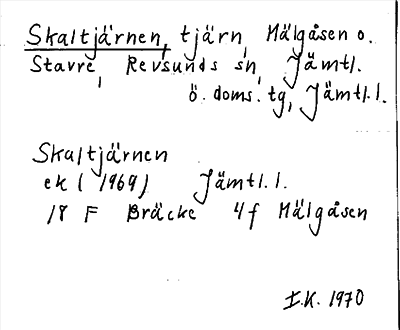 Skaltjärnen, tjärn, Mälgåsen o.
Stavre, Revsunds sn, Jämtl.
ö. doms. tg, Jämtl. l.
Skaltjärnen
ek (1969) Jämtl. l.
18 F Bräcke 4f Mälgåsen
I.K. 1970